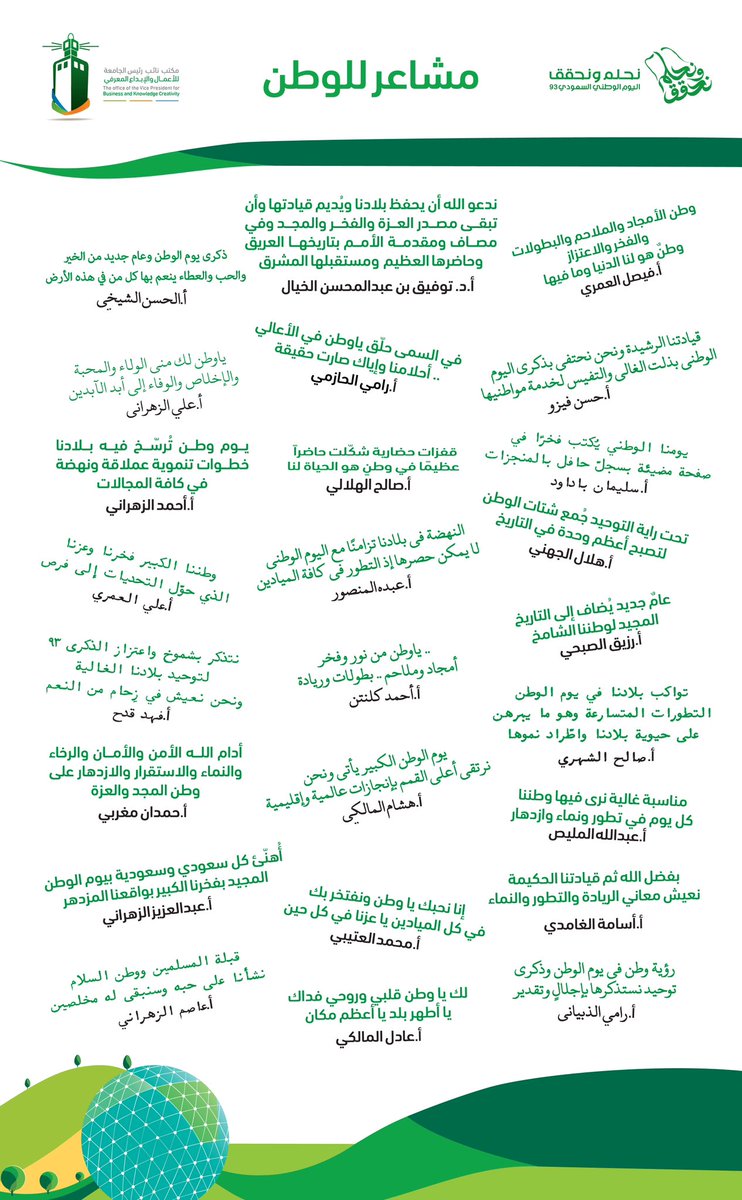 نحلم ونحقق
نحلم ونحقق
اليوم الوطني السعودي 93
مشاعر للوطن
مكتب نائب رئيس الجامعة
للأعمال والإبداع المعرفي
The office of the Vice President for
Business and Knowledge Creativity
ندعو الله أن يحفظ بلادنا ويُديم قيادتها وأن
تبقـى مصـدر العـزة والفخـر والمجـد وفي
مصـاف ومقدمـة الأمـم بتاريخهـا العريق
وحاضرها العظيم ومستقبلها المشرق
أ.د. توفيق بن عبدالمحسن الخيال
وطن الأمجاد والملاحم والبطولات
والفخر والاعتزاز
وطنٌ هو لنا الدنيا وما فيها
أ.فيصل العمري
ذكرى يوم الوطن وعام جديد من الخير
والحب والعطاء ينعم بها كل من في هذه الأرض
أ.الحسن الشيخي
قيادتنا الرشيدة ونحن نحتفى بذكرى اليوم
الوطنى بذلت الغالى والنفيس لخدمة مواطنيها
أ.حسن فيزو
في السمى حلّق ياوطن في الأعالي
.. أحلامنا وإياك صارت حقيقة
أ.رامي الحازمي
ياوطن لك منى الولاء والمحبة
والإخلاص والوفاء إلى أبد الآبدين
أ.علي الزهرانى
يومنا الوطني يُكتب فخرًا في
صفحة مضيئة بسجلّ حافل بالمنجزات
أ.سليمان باداود
قفزات حضارية شكّلت حاضراً
عظيمًا في وطنٍ هو الحياة لنا
أ.صالح الهلالي
يـوم وطـن تُرسّـخ فيـه بـلادنا
خطـوات تنموية عملاقة ونهضة
في كافة المجالات
أ.أحمد الزهراني
تحت راية التوحيد جُمع شتات الوطن
لتصبح أعظم وحدة في التاريخ
أ.هلال الجهني
النهضة فى بلادنا تزامنًا مع اليوم الوطنى
لا يمكن حصرها إذ التطور فى كافة الميادين
أ.عبده المنصور
وطننا الكبير فخرنا وعزنا
الذي حوّل التحديات إلى فرص
أ.علي العمري
عامٌ جديد يُضاف إلى التاريخ
المجيد لوطننا الشامخ
أ.رزيق الصبحي
.. ياوطن من نور وفخر
أمجاد وملاحم .. بطولات وريادة
أ.أحمد كلنتن
نتذكر بشموخ واعتزاز الذكرى ٩٣
لتوحيد بلادنا الغالية
ونحن نعيش في زحام من النعم
أ.فهد قدح
تواكب بلادنا في يوم الوطن
التطورات المتسارعة وهو ما يبرهن
على حيوية بلادنا واطّراد نموها
أ.صالح الشهري
يوم الوطن الكبير يأتى ونحن
نرتقى أعلى القمم بإنجازات عالمية وإقليمية
أ.هشام المالكي
أدام اللـه الأمن والأمـان والرخاء
والنماء والاستقرار والازدهار على
وطن المجد والعزة
أ.حمدان مغربي
مناسبة غالية نرى فيها وطننا
كل يوم في تطور ونماء وازدهار
أ.عبدالله المليص
أُهنّئ كل سعودي وسعودية بيوم الوطن
المجيد بفخرنا الكبير بواقعنا المزدهر
أ.عبدالعزيز الزهراني
بفضل الله ثم قيادتنا الحكيمة
نعيش معاني الريادة والتطور والنماء
أ.أسامة الغامدي
إنا نحبك يا وطن ونفتخر بك
في كل الميادين يا عزنا في كل حين
أ.محمد العتيبي
قبلة المسلمين ووطن السلام
نشأنا على حبه وسنبقى له مخلصين
أ.عاصم الزهراني
رؤية وطن فى يوم الوطن وذكرى
توحيد نستذكرها بإجلالٍ وتقدير
أ.رامي الذبيانى
لك يا وطن قلبي وروحي فداك
يا أطهر بلد يا أعظم مكان
أ.عادل المالكي